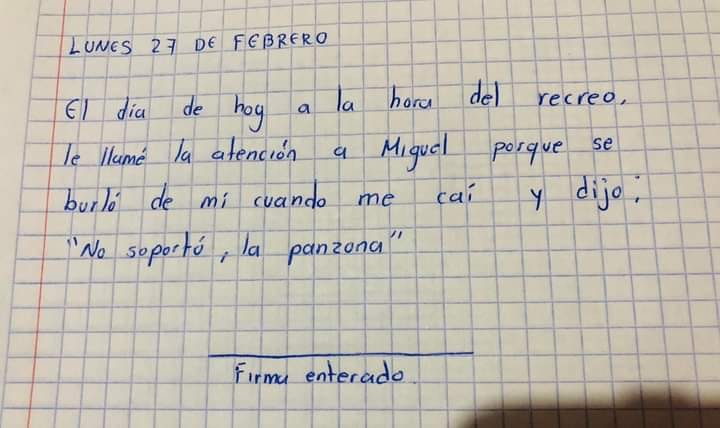 LUNES 27 DE FEBRERO
El día de hoy a la hora del recreo,
le llamé la atención a Miguel porque se
burló de mi cuando me caí y dijo:
"No soportó, la panzona"
Firma enterado.